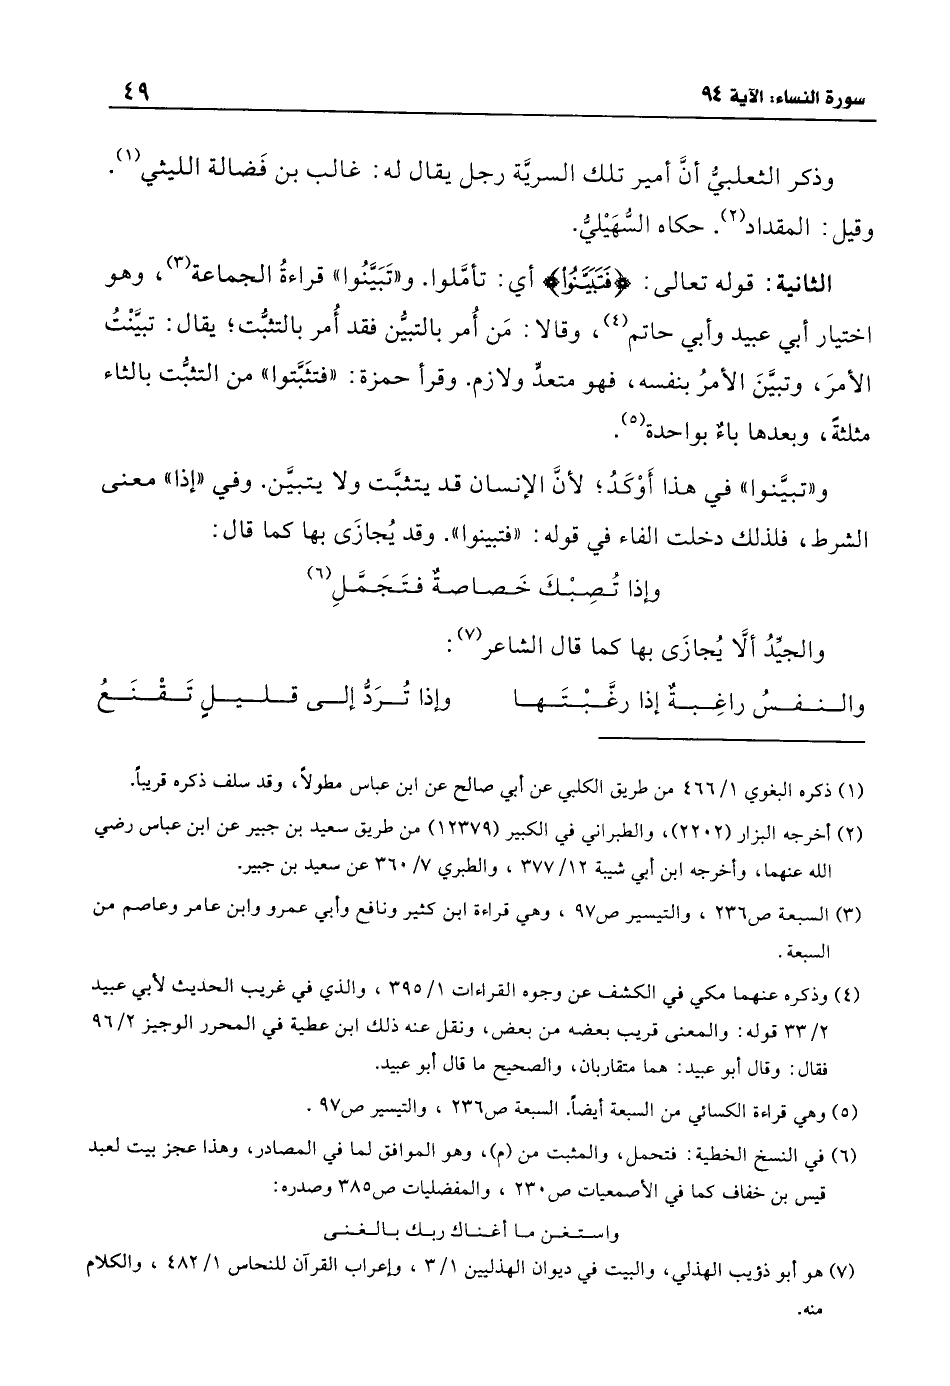 سورة النساء: الآية ٩٤
٤٩
وذكر الثعلبيُّ أنَّ أمير تلك السريَّة رجل يقال له: غالب بن فَضالة الليثي(١).
وقيل: المقداد(٢). حكاه السُّهَيْليُّ.
الثانية: قوله تعالى: ﴿فَتَبَيَّنُوا﴾ أي: تأمَّلوا. و«تَبَيَّنُوا» قراءةُ الجماعة(٣)، وهو
اختيار أبي عبيد وأبي حاتم(٤)، وقالا: مَن أُمر بالتبيُّن فقد أُمر بالتثبُّت؛ يقال: تبيَّنْتُ
الأمرَ، وتبيَّنَ الأمرُ بنفسه، فهو متعدٍّ ولازم. وقرأ حمزة: «فتثَبَّتوا» من التثبُّت بالثاء
مثلثةً، وبعدها باءٌ بواحدة(٥).
و«تبيَّنوا» في هذا أَوْكَدُ؛ لأنَّ الإنسان قد يتثبَّت ولا يتبيَّن. وفي «إذا» معنى
الشرط، فلذلك دخلت الفاء في قوله: «فتبينوا». وقد يُجازَى بها كما قال:
وإذا تُصِبْكَ خَصاصةٌ فتَجَمَّلِ(٦)
والجيِّدُ ألَّا يُجازَى بها كما قال الشاعر(٧):
والنفسُ راغِبةٌ إذا رغَّبْتَها وإذا تُرَدُّ إلى قليلٍ تَقْنَعُ
(١) ذكره البغوي ١/ ٤٦٦ من طريق الكلبي عن أبي صالح عن ابن عباس مطولاً، وقد سلف ذكره قريباً.
(٢) أخرجه البزار (٢٢٠٢)، والطبراني في الكبير (١٢٣٧٩) من طريق سعيد بن جبير عن ابن عباس رضي
الله عنهما، وأخرجه ابن أبي شيبة ١٢/ ٣٧٧ ، والطبري ٧/ ٣٦٠ عن سعيد بن جبير.
(٣) السبعة ص٢٣٦ ، والتيسير ص٩٧ ، وهي قراءة ابن كثير ونافع وأبي عمرو وابن عامر وعاصم من
السبعة .
(٤) وذكره عنهما مكي في الكشف عن وجوه القراءات ١/ ٣٩٥ ، والذي في غريب الحديث لأبي عبيد
٢/ ٣٣ قوله: والمعنى قريب بعضه من بعض، ونقل عنه ذلك ابن عطية في المحرر الوجيز ٢/ ٩٦
فقال: وقال أبو عبيد: هما متقاربان، والصحيح ما قال أبو عبيد.
(٥) وهي قراءة الكسائي من السبعة أيضاً. السبعة ص٢٣٦ ، والتيسير ص٩٧ .
(٦) في النسخ الخطية: فتحمل، والمثبت من (م)، وهو الموافق لما في المصادر، وهذا عجز بيت لعبد
قيس بن خفاف كما في الأصمعيات ص٢٣٠ ، والمفضليات ص٣٨٥ وصدره:
واستغن ما أغناك ربك بالغنى
(٧) هو أبو ذؤيب الهذلي، والبيت في ديوان الهذليين ١/ ٣ ، وإعراب القرآن للنحاس ١/ ٤٨٢ ، والكلام
منه.